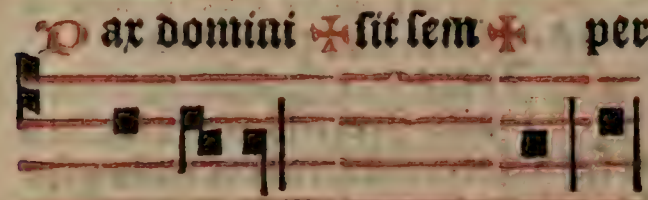 Pax domini ✠ sit sem ✠ per